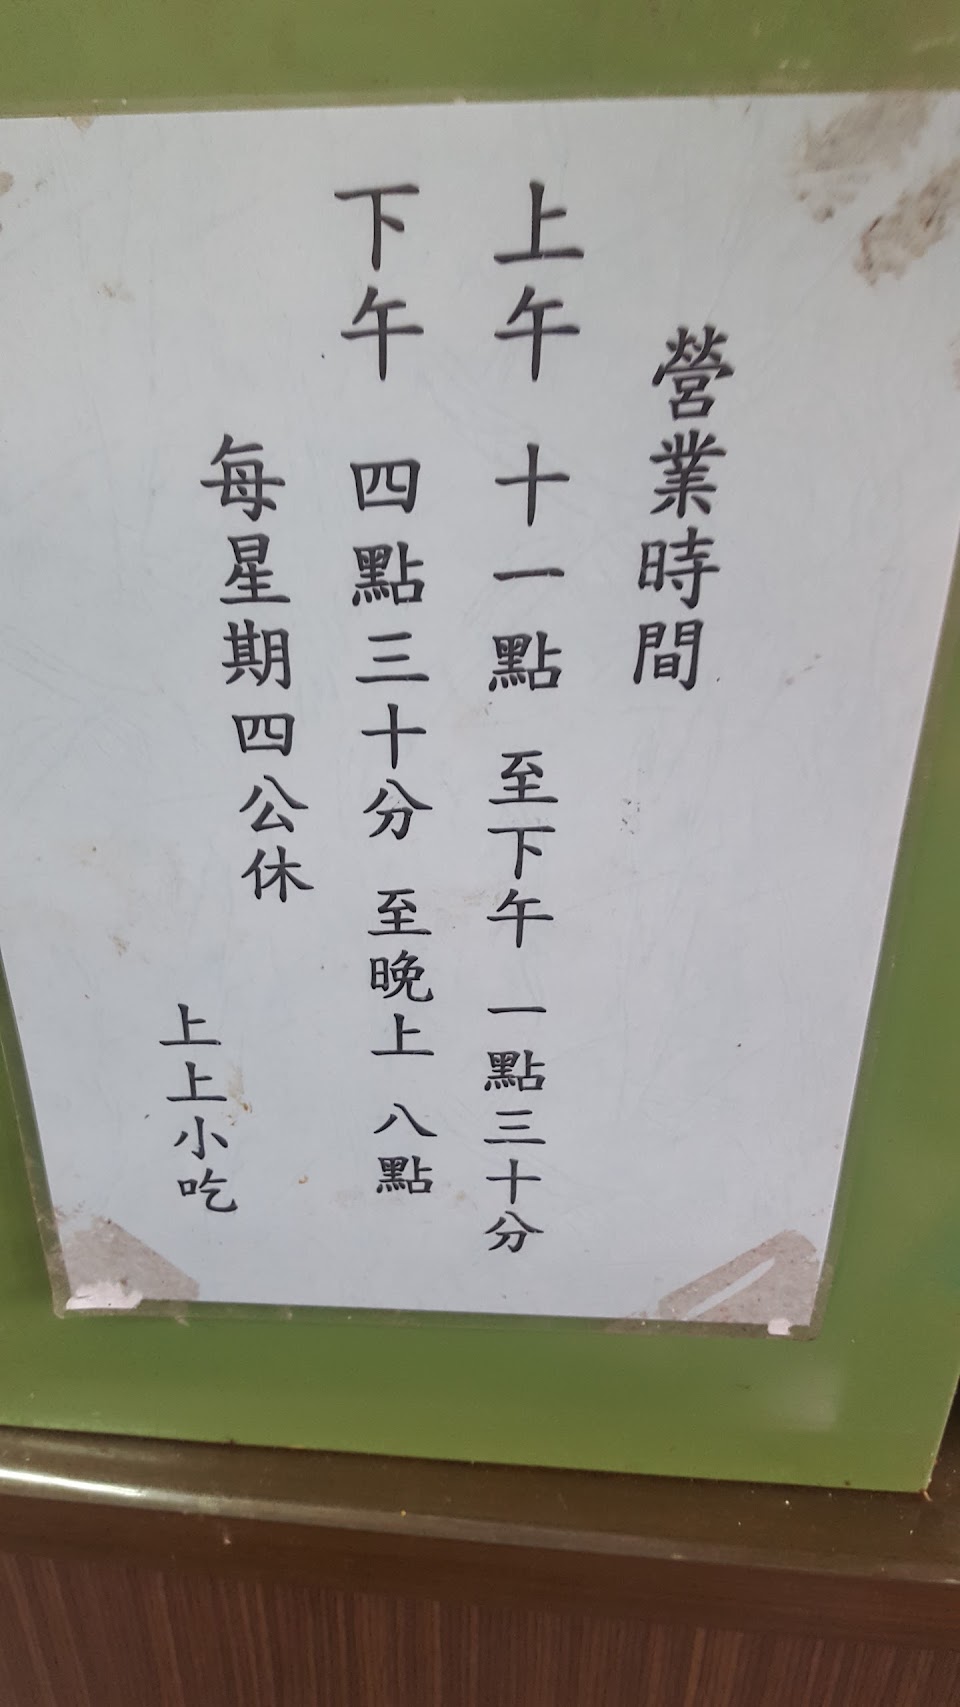 營業時間
上午 十一點 至下午 一點三十分
下午 四點三十分 至晚上 八點
每星期四公休
上上小吃